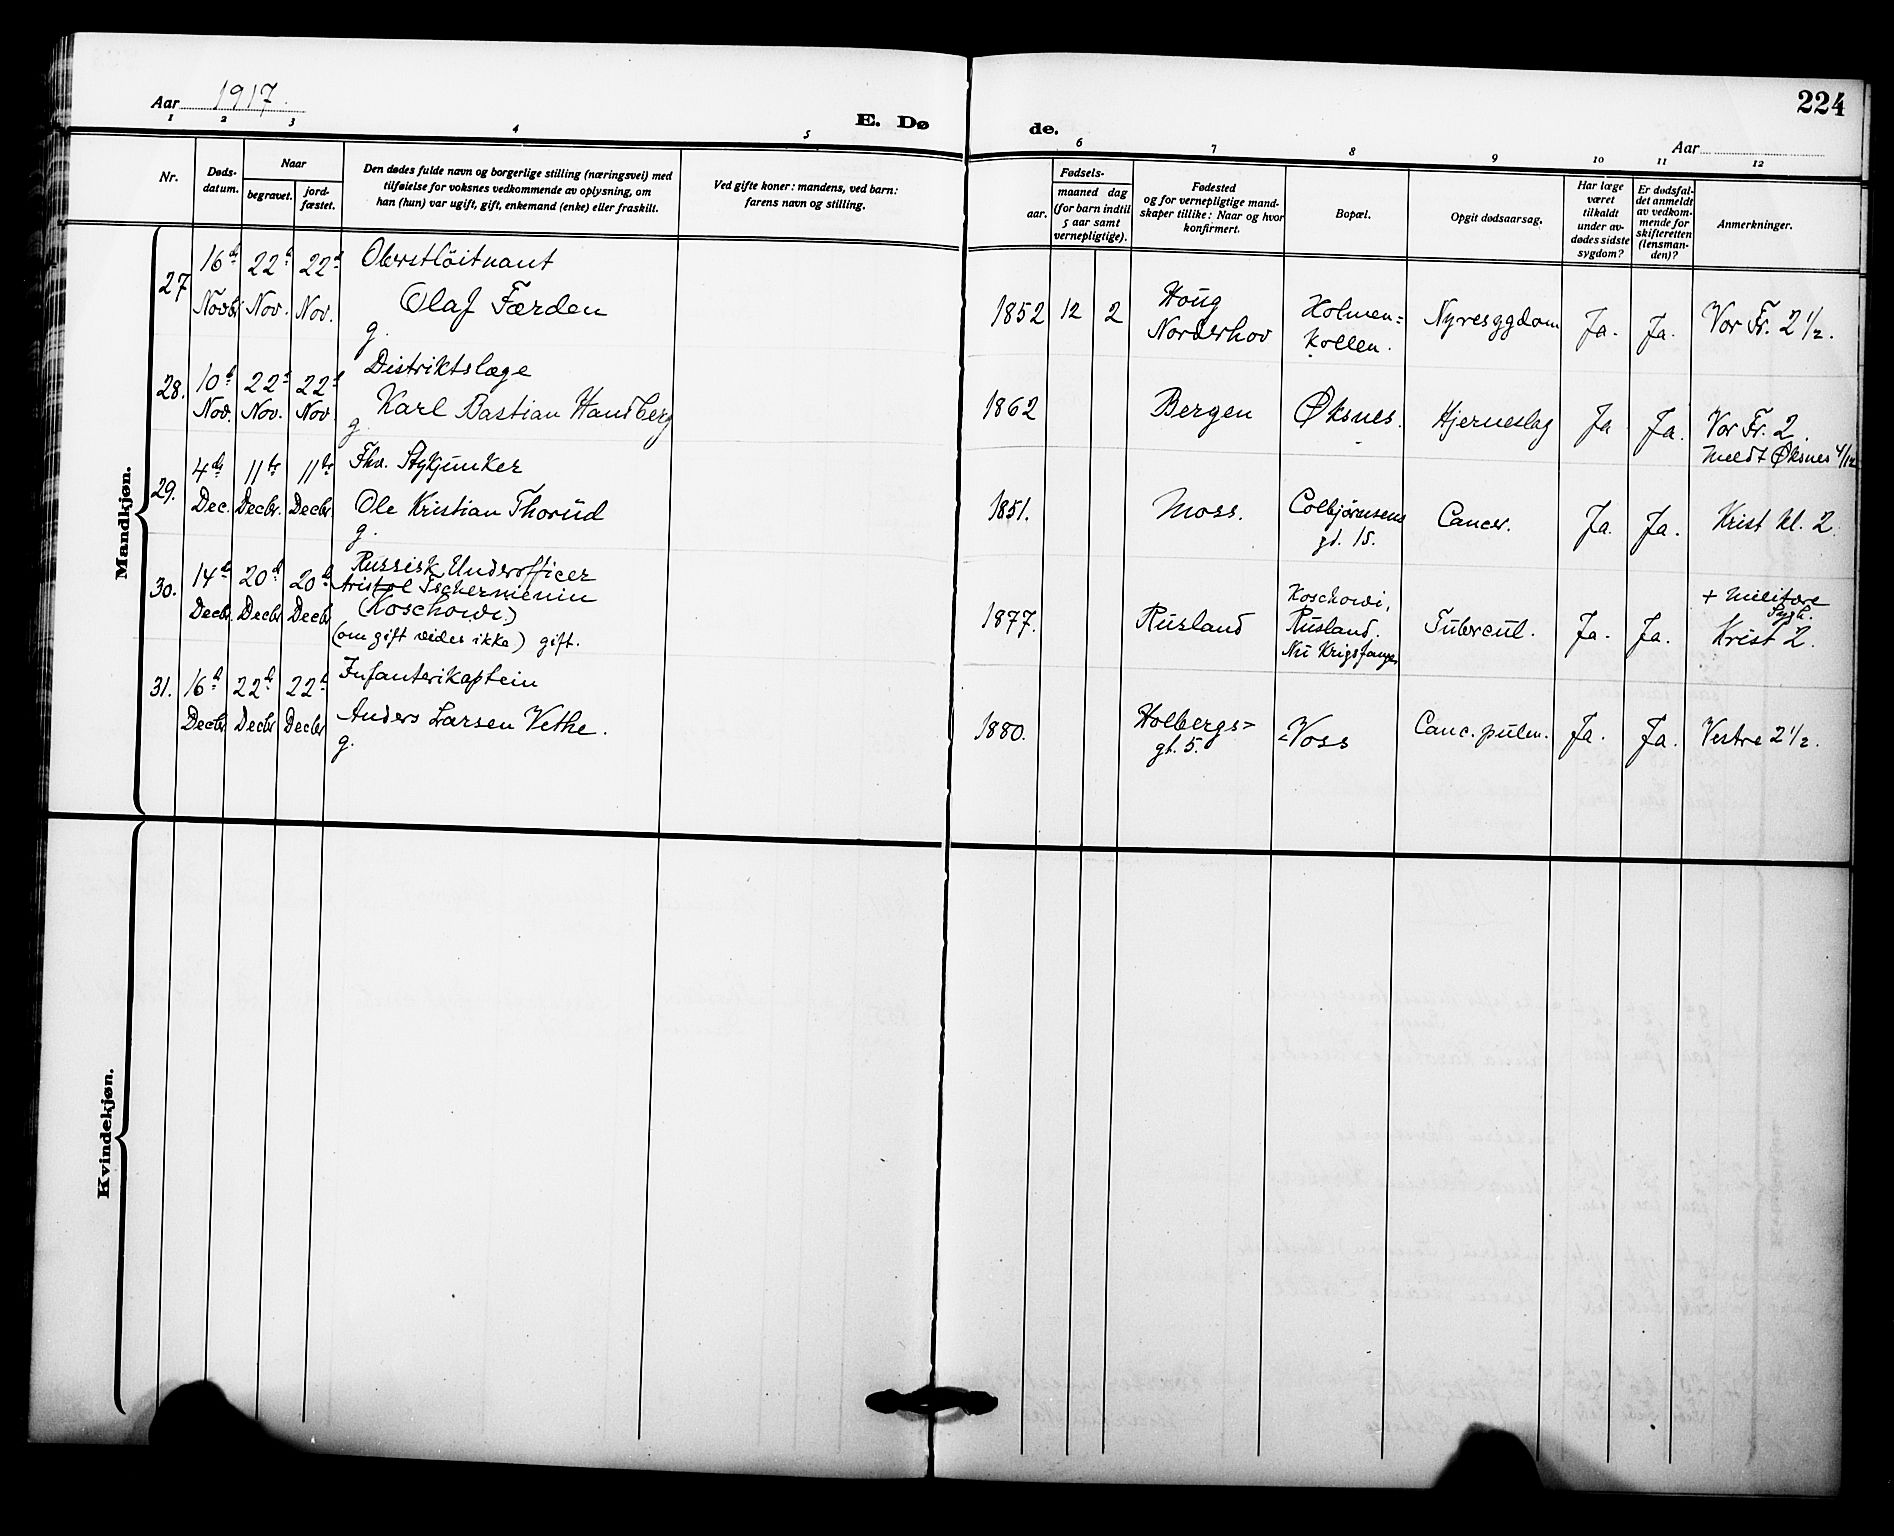 Aar 1917.
E. Døde.
224
Aar
1 2 3 4 5 6 7 8 9 10 11 12
Nr.
Døds-
datum.
Naar
begravet.
jord-
fæstet.
Den dødes fulde navn og borgerlige stilling (næringsvei) med
tilføielse for voksnes vedkommende av oplysning, om
han (hun) var ugift, gift, enkemand (enke) eller fraskilt.
Ved gifte koner: mandens, ved barn:
farens navn og stilling.
Fødsels-
aar.
maaned dag
(for barn indtil
5 aar samt
vernepligtige).
Fødested
og for vernepligtige mand-
skaper tillike: Naar og hvor
konfirmert.
Bopæl.
Opgit dødsaarsag.
Har læge
været
tilkaldt
under av-
dødes sidste
sygdom?
Er dødsfal-
det anmeldt
av vedkom-
mende for
skifteretten
(lensman-
den)?
Anmerkninger.
Mandkjøn.
27
16de Novbr.
22d Nov.
22d Nov.
Oberstlöitnant
Olaf Færden
g.
1852 12 2
Houg
Norderhov
Holmen=
kollen.
Nyresygdom
Ja.
Ja.
Vor Fr. 2 1/2.
28.
10d Nov.
22d Nov.
22d Nov
Distriktslæge
Karl Bastian Handberg
g.
1862
Bergen
Øksnes.
Hjerneslag
Ja
Ja.
Vor Fr. 2.
meldt Øksnes 4/12
29.
4de Dec.
11te Decbr.
11te Decbr.
Fhv. Stykjunker
Ole Kristian Thorud
g.
1851.
Moss.
Colbjørnsens
gd. 15.
Cancer.
Ja.
Ja.
Krist kl. 2.
30.
14d Decbr.
20d Decbr
20d Decbr
Russisk Underofficer
Aristol Tschermenin
(Koschowi.)
(om gift vides ikke) gift.
1877.
Rusland
Koschowi,
Rusland.
Nu Krigsfange
Tubercul.
Ja.
Ja.
+ militære
Sygh.
Krist 2.
31.
16d Decbr
22d Decbr
22d Decbr
Infanterikaptein
Anders Larsen Vethe.
g.
1880.
Holbergs=
gt. 5.
=Voss
Canc. pulm.
Ja.
Ja.
Vestre 2 1/2.
Kvindekjøn.